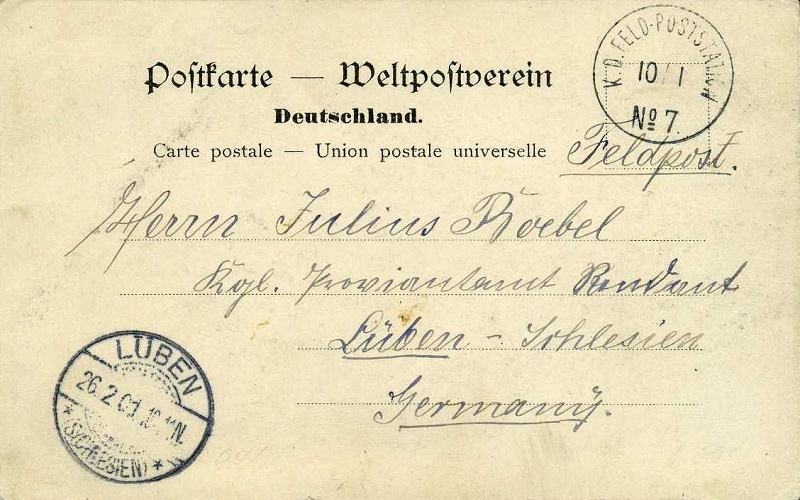 K. D. FELD-POSTSTATION
10/1
No 7.
Postkarte — Weltpostverein
Deutschland.
Carte postale — Union postale universelle
Feldpost.
Herrn Julius Roebel
Kgl. Proviantamt Rendant
Lüben - Schlesien
Germany.
LÜBEN
26.2.01.
* (SCHLESIEN) *